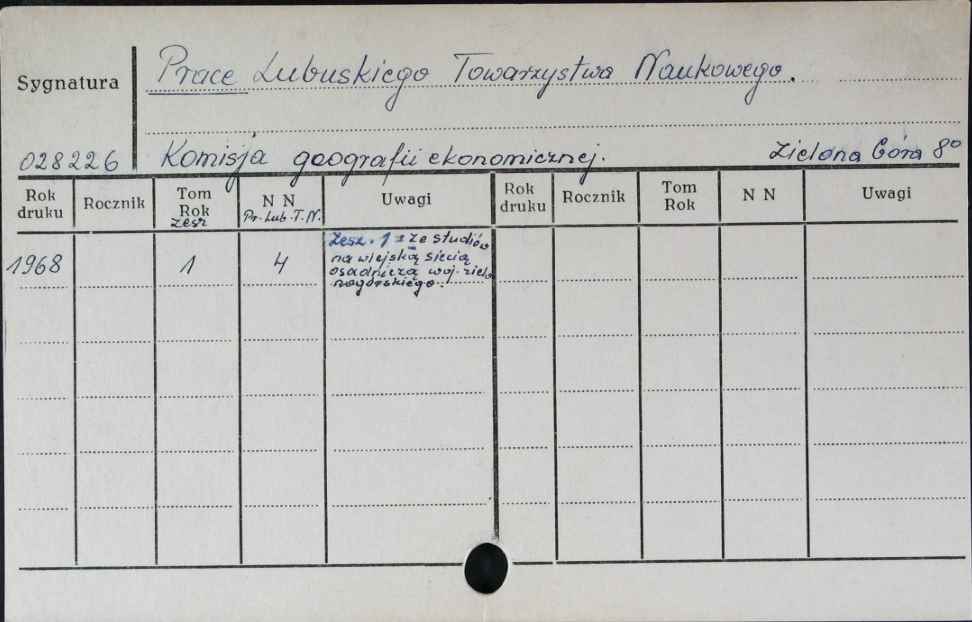 Sygnatura
Prace Lubuskiego Towarzystwa Naukowego.
028226
Komisja geografii ekonomicznej.
Zielona Góra 8°
Rok druku
Rocznik
Tom Rok
zesz
N N
Pr. Lub. T. N.
Uwagi
Rok druku
Rocznik
Tom Rok
N N
Uwagi
1968
1
4
Zesz. 1 = Ze studiów
na wiejską siecią
osadniczą woj. zielo
nogórskiego.